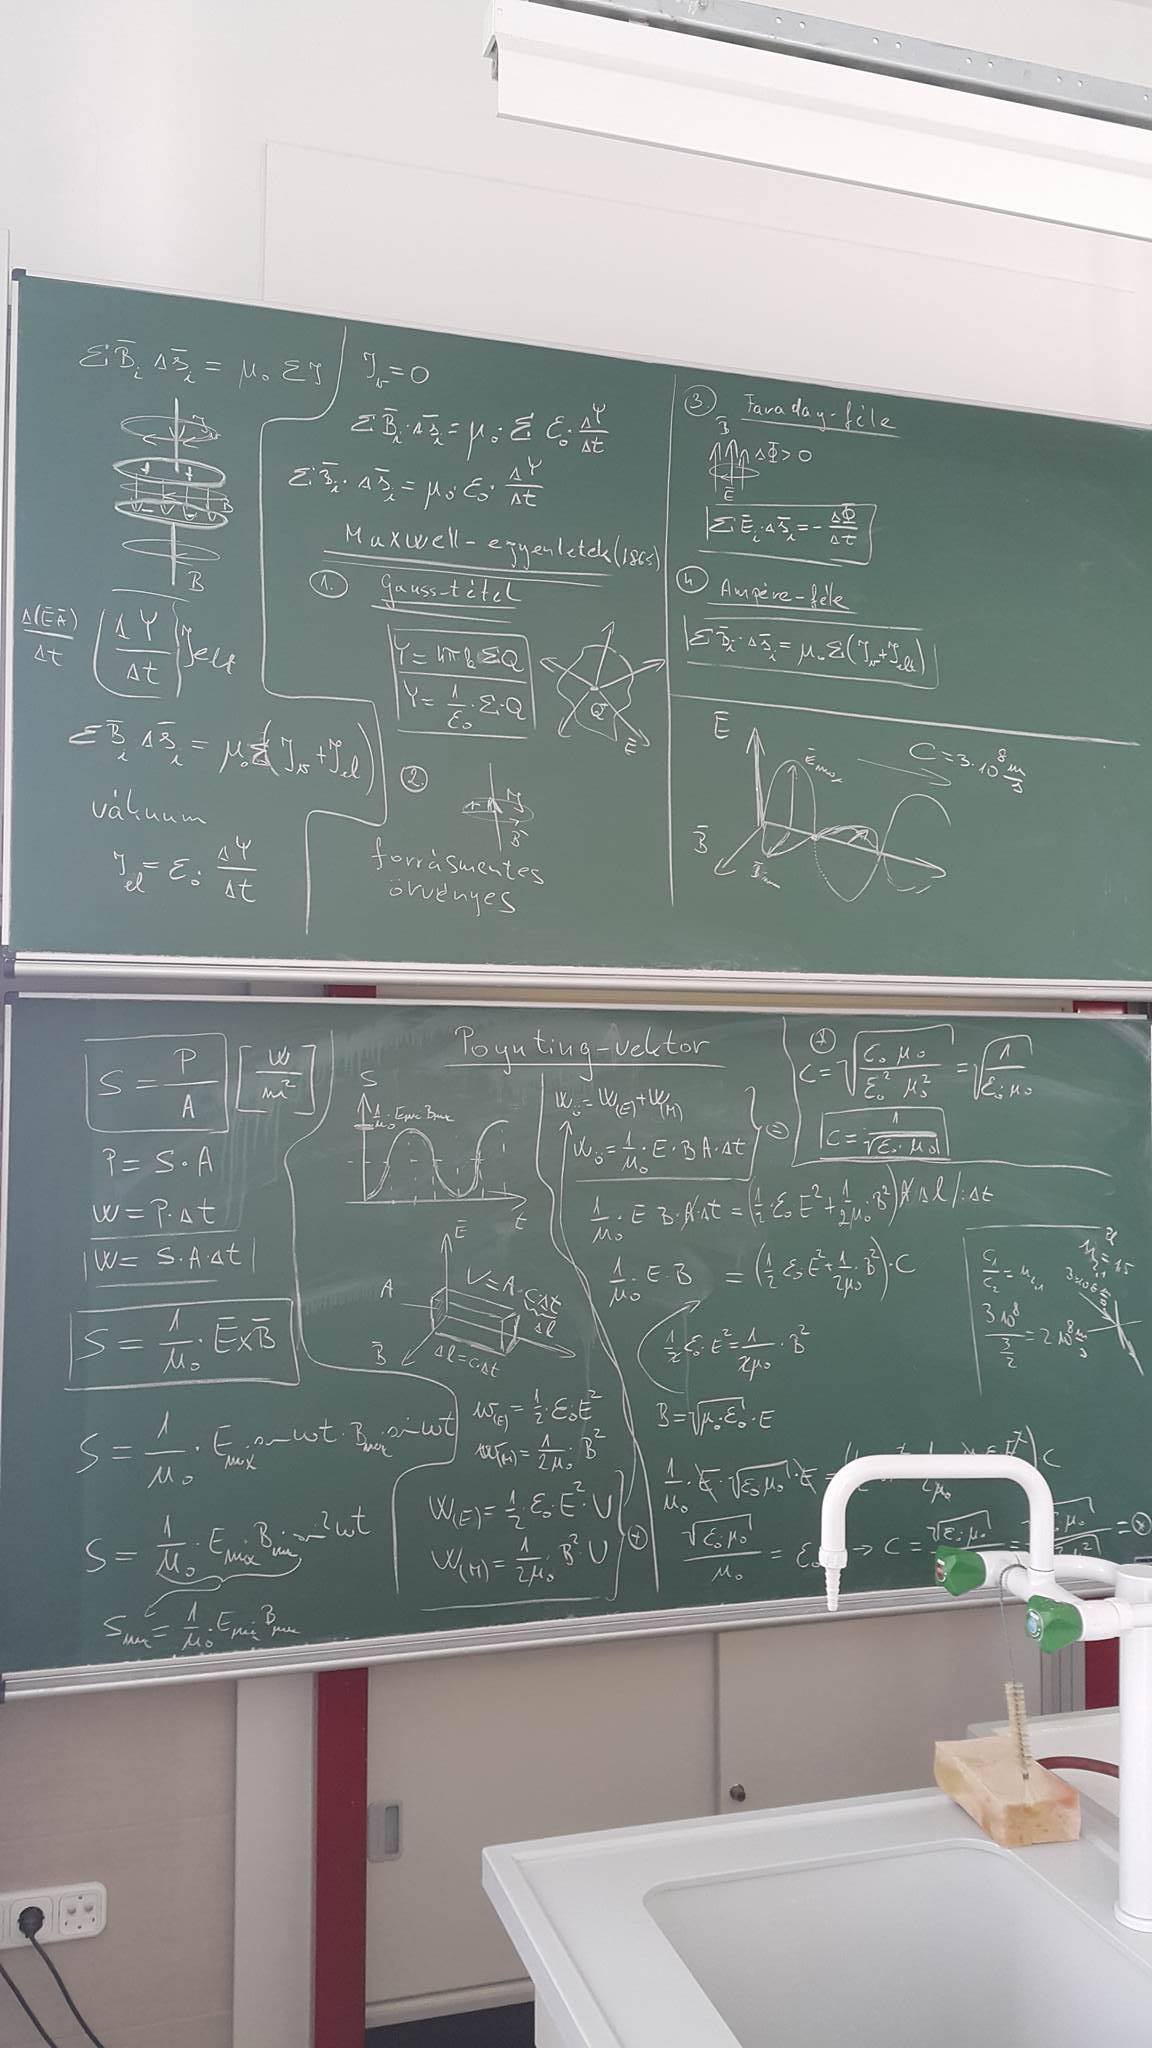 ΣB̄ᵢ Δs̄ᵢ = μ₀ ΣI
I
B
B
Δ(ĒĀ)/Δt (ΔΨ/Δt) I elt
ΣB̄ᵢ Δs̄ᵢ = μ₀ Σ(Iᵥ + I_el)
vákuum
I_el = ε₀ · ΔΨ/Δt
Iᵥ = 0
ΣB̄ᵢ · Δs̄ᵢ = μ₀ · Σ ε₀ · ΔΨ/Δt
ΣB̄ᵢ · Δs̄ᵢ = μ₀ · ε₀ · ΔΨ/Δt
Maxwell-egyenletek (1865)
1. Gauss-tétel
Ψ = 4πk ΣQ
Ψ = 1/ε₀ · Σ·Q
Q
Ē
2.
I
r
B̄
forrásmentes
örvényes
3. Faraday-féle
B̄
ΔΦ > 0
Ē
ΣĒᵢ · Δs̄ᵢ = - ΔΦ/Δt
4. Ampére-féle
ΣB̄ᵢ · Δs̄ᵢ = μ₀ Σ(Iᵥ + I_elt)
Ē
Ē max
C = 3·10⁸ m/s
B̄
S = P/A [W/m²]
P = S·A
W = P·Δt
W = S·A·Δt
S = 1/μ₀ · Ē×B̄
S = 1/μ₀ · E_max sin ωt · B_max sin ωt
S = 1/μ₀ · E_max B_max sin² ωt
S_max = 1/μ₀ · E_max B_max
Poynting-vektor
S
1/μ₀ · E_max B_max
t
Ē
A
V = A · C·Δt
Δl
B̄
Δl = c·Δt
w(E) = 1/2 · ε₀E²
w(M) = 1/2μ₀ · B²
W(E) = 1/2 · ε₀ · E² · V
W(M) = 1/2μ₀ · B² · V
Wö = W(E) + W(M)
Wö = 1/μ₀ · E · B A · Δt
=
1/μ₀ · E B·A·Δt = (1/2 · ε₀E² + 1/2μ₀ · B²) A Δl /:Δt
1/μ₀ · E·B = (1/2 ε₀E² + 1/2μ₀ · B²) · C
1/2 ε₀·E² = 1/2μ₀ · B²
B = √μ₀·ε₀ · E
1/μ₀ · E · √ε₀μ₀ · E =
√ε₀·μ₀/μ₀ = ε₀
→ C =
C = √(ε₀ μ₀/ε₀² μ₀²) = √(1/ε₀·μ₀)
C = 1/√ε₀·μ₀
c₁/c₂ = n₂,₁
3·10⁸/(3/2) = 2·10⁸ m/s